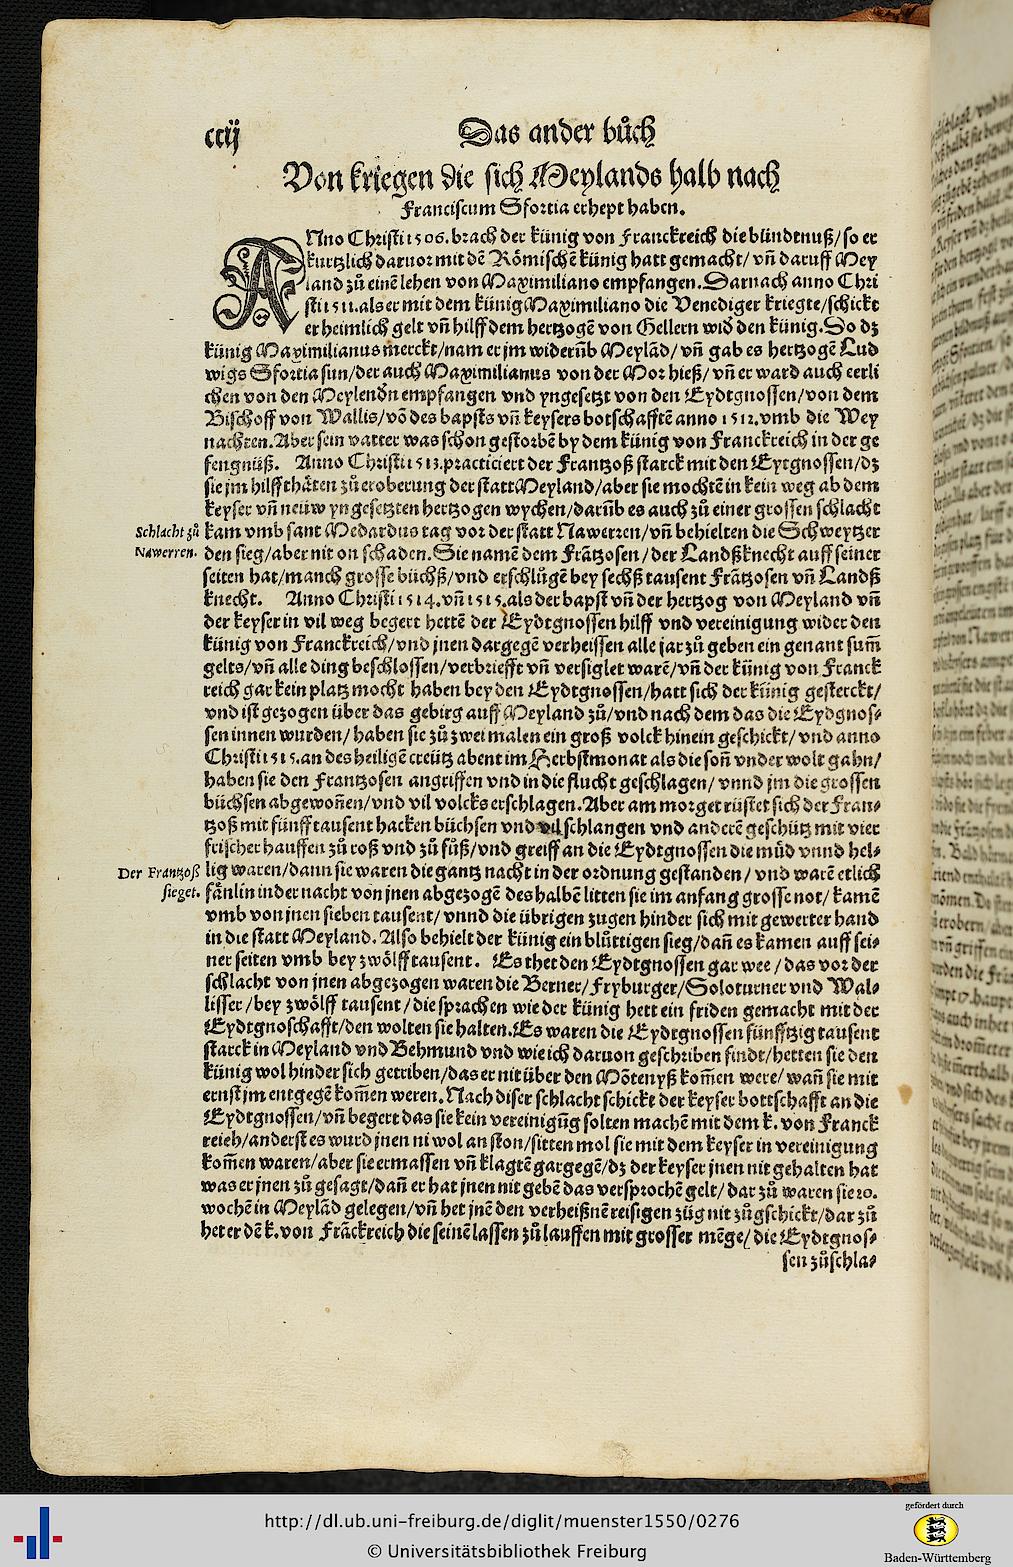 ccij
Das ander bůch
Von kriegen die sich Meylands halb nach
Franciscum Sfortia erhept haben.
ANno Christi 1506. brach der künig von Franckreich die bündtnuß/so er
kurtzlich daruor mit dē Römischē künig hatt gemacht/ vñ daruff Mey
land zů einē lehen von Maximiliano empfangen. Darnach anno Chri
sti 1511. als er mit dem künig Maximiliano die Venediger kriegte/schickt
er heimlich gelt vñ hilff dem hertzogē von Gellern wid den künig. So dz
künig Maximilianus merckt/nam er jm widerūb Meylād/ vñ gab es hertzogē Lud
wigs Sfortia sun/der auch Maximilianus von der Mor hieß/ vñ er ward auch eerli
chen von den Meylendn empfangen vnd yngesetzt von den Eydtgnossen/von dem
Bischoff von Wallis/vō des bapsts vñ keysers botschafftē anno 1512. vmb die Wey
nachten. Aber sein vatter was schon gestorbē by dem künig von Franckreich in der ge
fengnüß. Anno Christi 1513. practiciert der Frantzoß starck mit den Eytgnossen/dz
sie jm hilff thäten zů eroberung der statt Meyland/aber sie mochtē in kein weg ab dem
keyser vñ neüw yngesetzten hertzogen wychen/darūb es auch zů einer grossen schlacht
Schlacht zů
Nawerren.
kam vmb sant Medardus tag vor der statt Nawerren/vñ behielten die Schweytzer
den sieg/aber nit on schaden. Sie namē dem Frātzosen/der Landßknecht auff seiner
seiten hat/manch grosse büchß/vnd erschlůgē bey sechß tausent Frātzosen vñ Landß
knecht. Anno Christi 1514. vñ 1515. als der bapst vñ der hertzog von Meyland vñ
der keyser in vil weg begert hettē der Eydtgnossen hilff vnd vereinigung wider den
künig von Franckreich/vnd jnen dargegē verheissen alle jar zů geben ein genant sum̄
gelts/vñ alle ding beschlossen/verbriefft vñ versiglet warē/vñ der künig von Franck
reich gar kein platz mocht haben bey den Eydtgnossen/hatt sich der künig gesterckt/
vnd ist gezogen über das gebirg auff Meyland zů/vnd nach dem das die Eydgnos⸗
sen innen wurden/haben sie zů zwei malen ein groß volck hinein geschickt/ vnd anno
Christi 1515. an des heiligē creütz abent im Herbstmonat als die soñ vnder wolt gahn/
haben sie den Frantzosen angriffen vnd in die flucht geschlagen/ vnnd jm die grossen
büchsen abgewoñen/vnd vil volcks erschlagen. Aber am morget rüstet sich der Fran⸗
tzoß mit fünff tausent hacken büchsen vnd vil schlangen vnd anderē geschütz mit vier
frischer hauffen zů roß vnd zů fůß/vnd greiff an die Eydtgnossen die müd vnnd hel⸗
Der Frantzoß
sieget.
lig waren/dann sie waren die gantz nacht in der ordnung gestanden/ vnd warē etlich
fänlin in der nacht von jnen abgezogē des halbē litten sie im anfang grosse not/ kamē
vmb von jnen sieben tausent/ vnnd die übrigen zugen hinder sich mit gewerter hand
in die statt Meyland. Also behielt der künig ein blůttigen sieg/dañ es kamen auff sei⸗
ner seiten vmb bey zwölff tausent. Es thet den Eydtgnossen gar wee/das vor der
schlacht von jnen abgezogen waren die Berner/Fryburger/Soloturner vnd Wal⸗
lisser/bey zwölff tausent/die sprachen wie der künig hett ein friden gemacht mit der
Eydtgnoschafft/den wolten sie halten. Es waren die Eydtgnossen fünfftzig tausent
starck in Meyland vnd Behmund vnd wie ich daruon geschriben findt/hetten sie den
künig wol hinder sich getriben/das er nit über den Mōtenyß kom̄en were/wañ sie mit
ernst jm entgegē kom̄en weren. Nach diser schlacht schickt der keyser bottschafft an die
Eydtgnossen/vñ begert das sie kein vereinigūg solten machē mit dem k. von Franck
reich/anderst es wurd jnen ni wol an ston/sitten mol sie mit dem keyser in vereinigung
kom̄en waren/aber sie ermassen vñ klagtē gargegē/dz der keyser jnen nit gehalten hat
was er jnen zů gesagt/dañ er hat jnen nit gebē das versprochē gelt/ dar zů waren sie 20.
wochē in Meylād gelegen/vñ het jnē den verheißnē reisigen züg nit zůgschickt/dar zů
het er dē k. von Frāckreich die seinē lassen zů lauffen mit grosser mēge/ die Eydtgnos⸗
sen zůschla⸗
http://dl.ub.uni-freiburg.de/diglit/muenster1550/0276
© Universitätsbibliothek Freiburg
gefördert durch
Baden-Württemberg